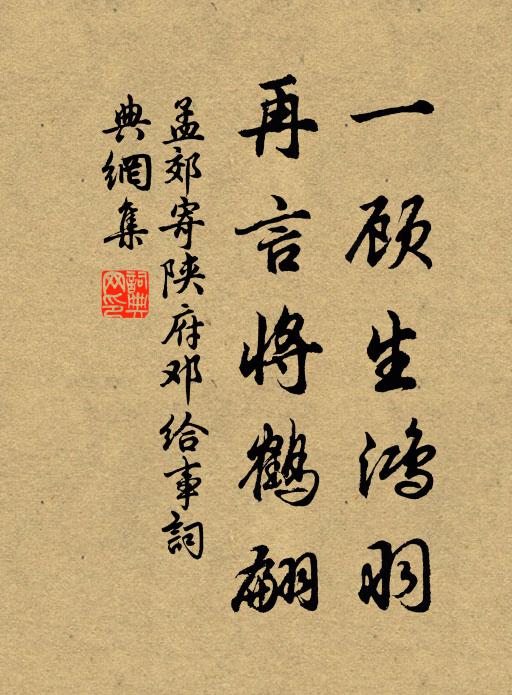 一顾生鸿羽
再言将鹤翩
孟郊寄陕府邓给事詞
典網集
詞典
网印